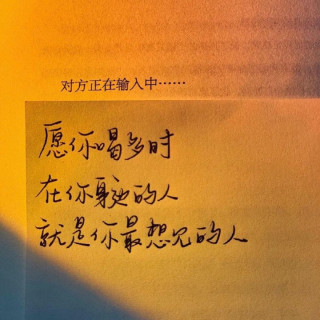 对方正在输入中……
愿你喝多时
在你身边的人
就是你最想见的人